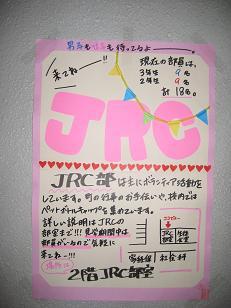 男子も女子も待ってるよ
来てねー!!
現在の部員は、
3年生 9名
2年生 9名
計18名。
JRC
JRC部は主にボランティア活動を
しています。町の行事のお手伝いや、校内では
ペットボトルキャップを集めています。
詳しい説明はJRCの
部室まで!!! 見学期間中は
部員がいるので気軽に
来てねー!!!
場所は
2階 JRC部室